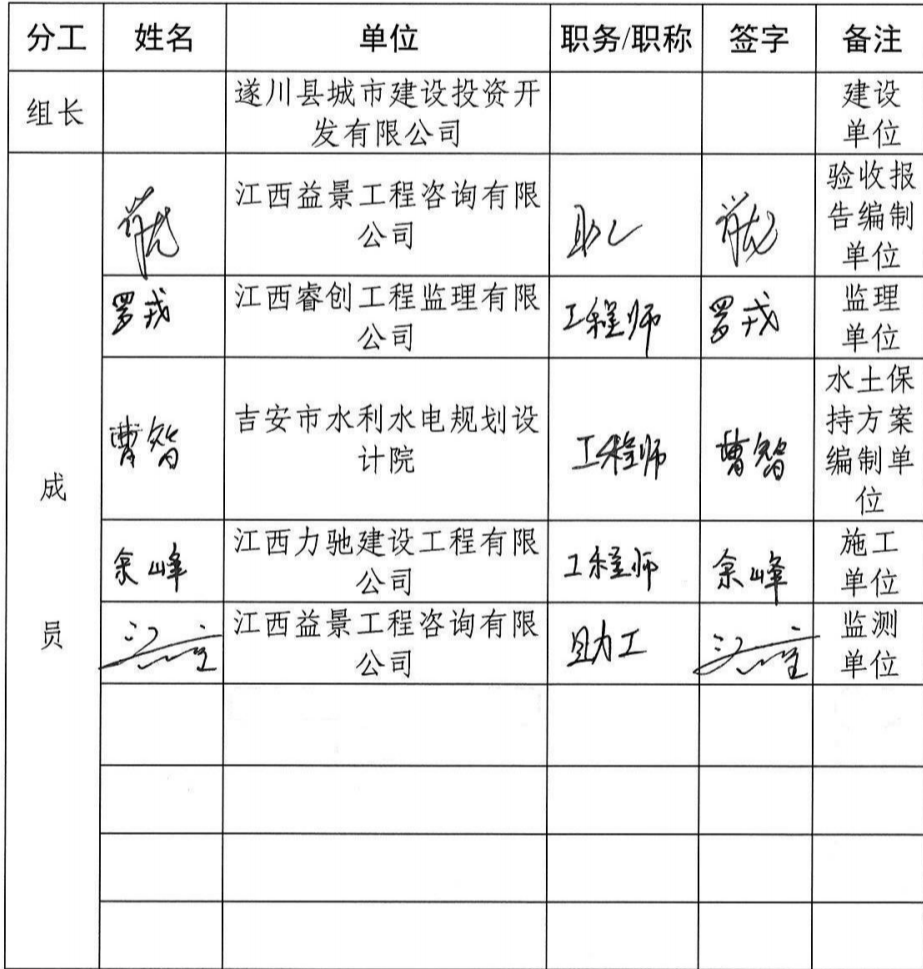 分工 姓名 单位 职务/职称 签字 备注
组长 遂川县城市建设投资开 建设
发有限公司 单位
成
员
江西益景工程咨询有限 验收报
公司 告编制
单位
罗戎 江西睿创工程监理有限 工程师 罗戎 监理
公司 单位
曹智 吉安市水利水电规划设 工程师 曹智 水土保
计院 持方案
编制单
位
余峰 江西力驰建设工程有限 工程师 余峰 施工
公司 单位
江西益景工程咨询有限 助工 监测
公司 单位